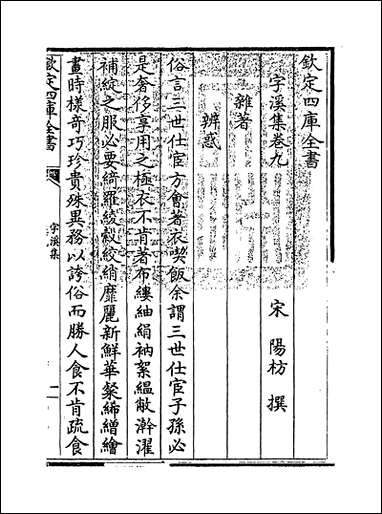 欽定四庫全書
字溪集卷九
宋 陽枋 撰
雜著
辨惑
俗言三世仕宦方會著衣喫飯余謂三世仕宦子孫必
是奢侈享用之極衣不肯著布縷紬絹衲絮縕敝澣濯
補綻之服必要綺羅綾縠絞綃靡麗新鮮華粲絺繒繪
畫時樣奇巧珍貴殊異務以誇俗而勝人食不肯疏食
欽定四庫全書
字溪集